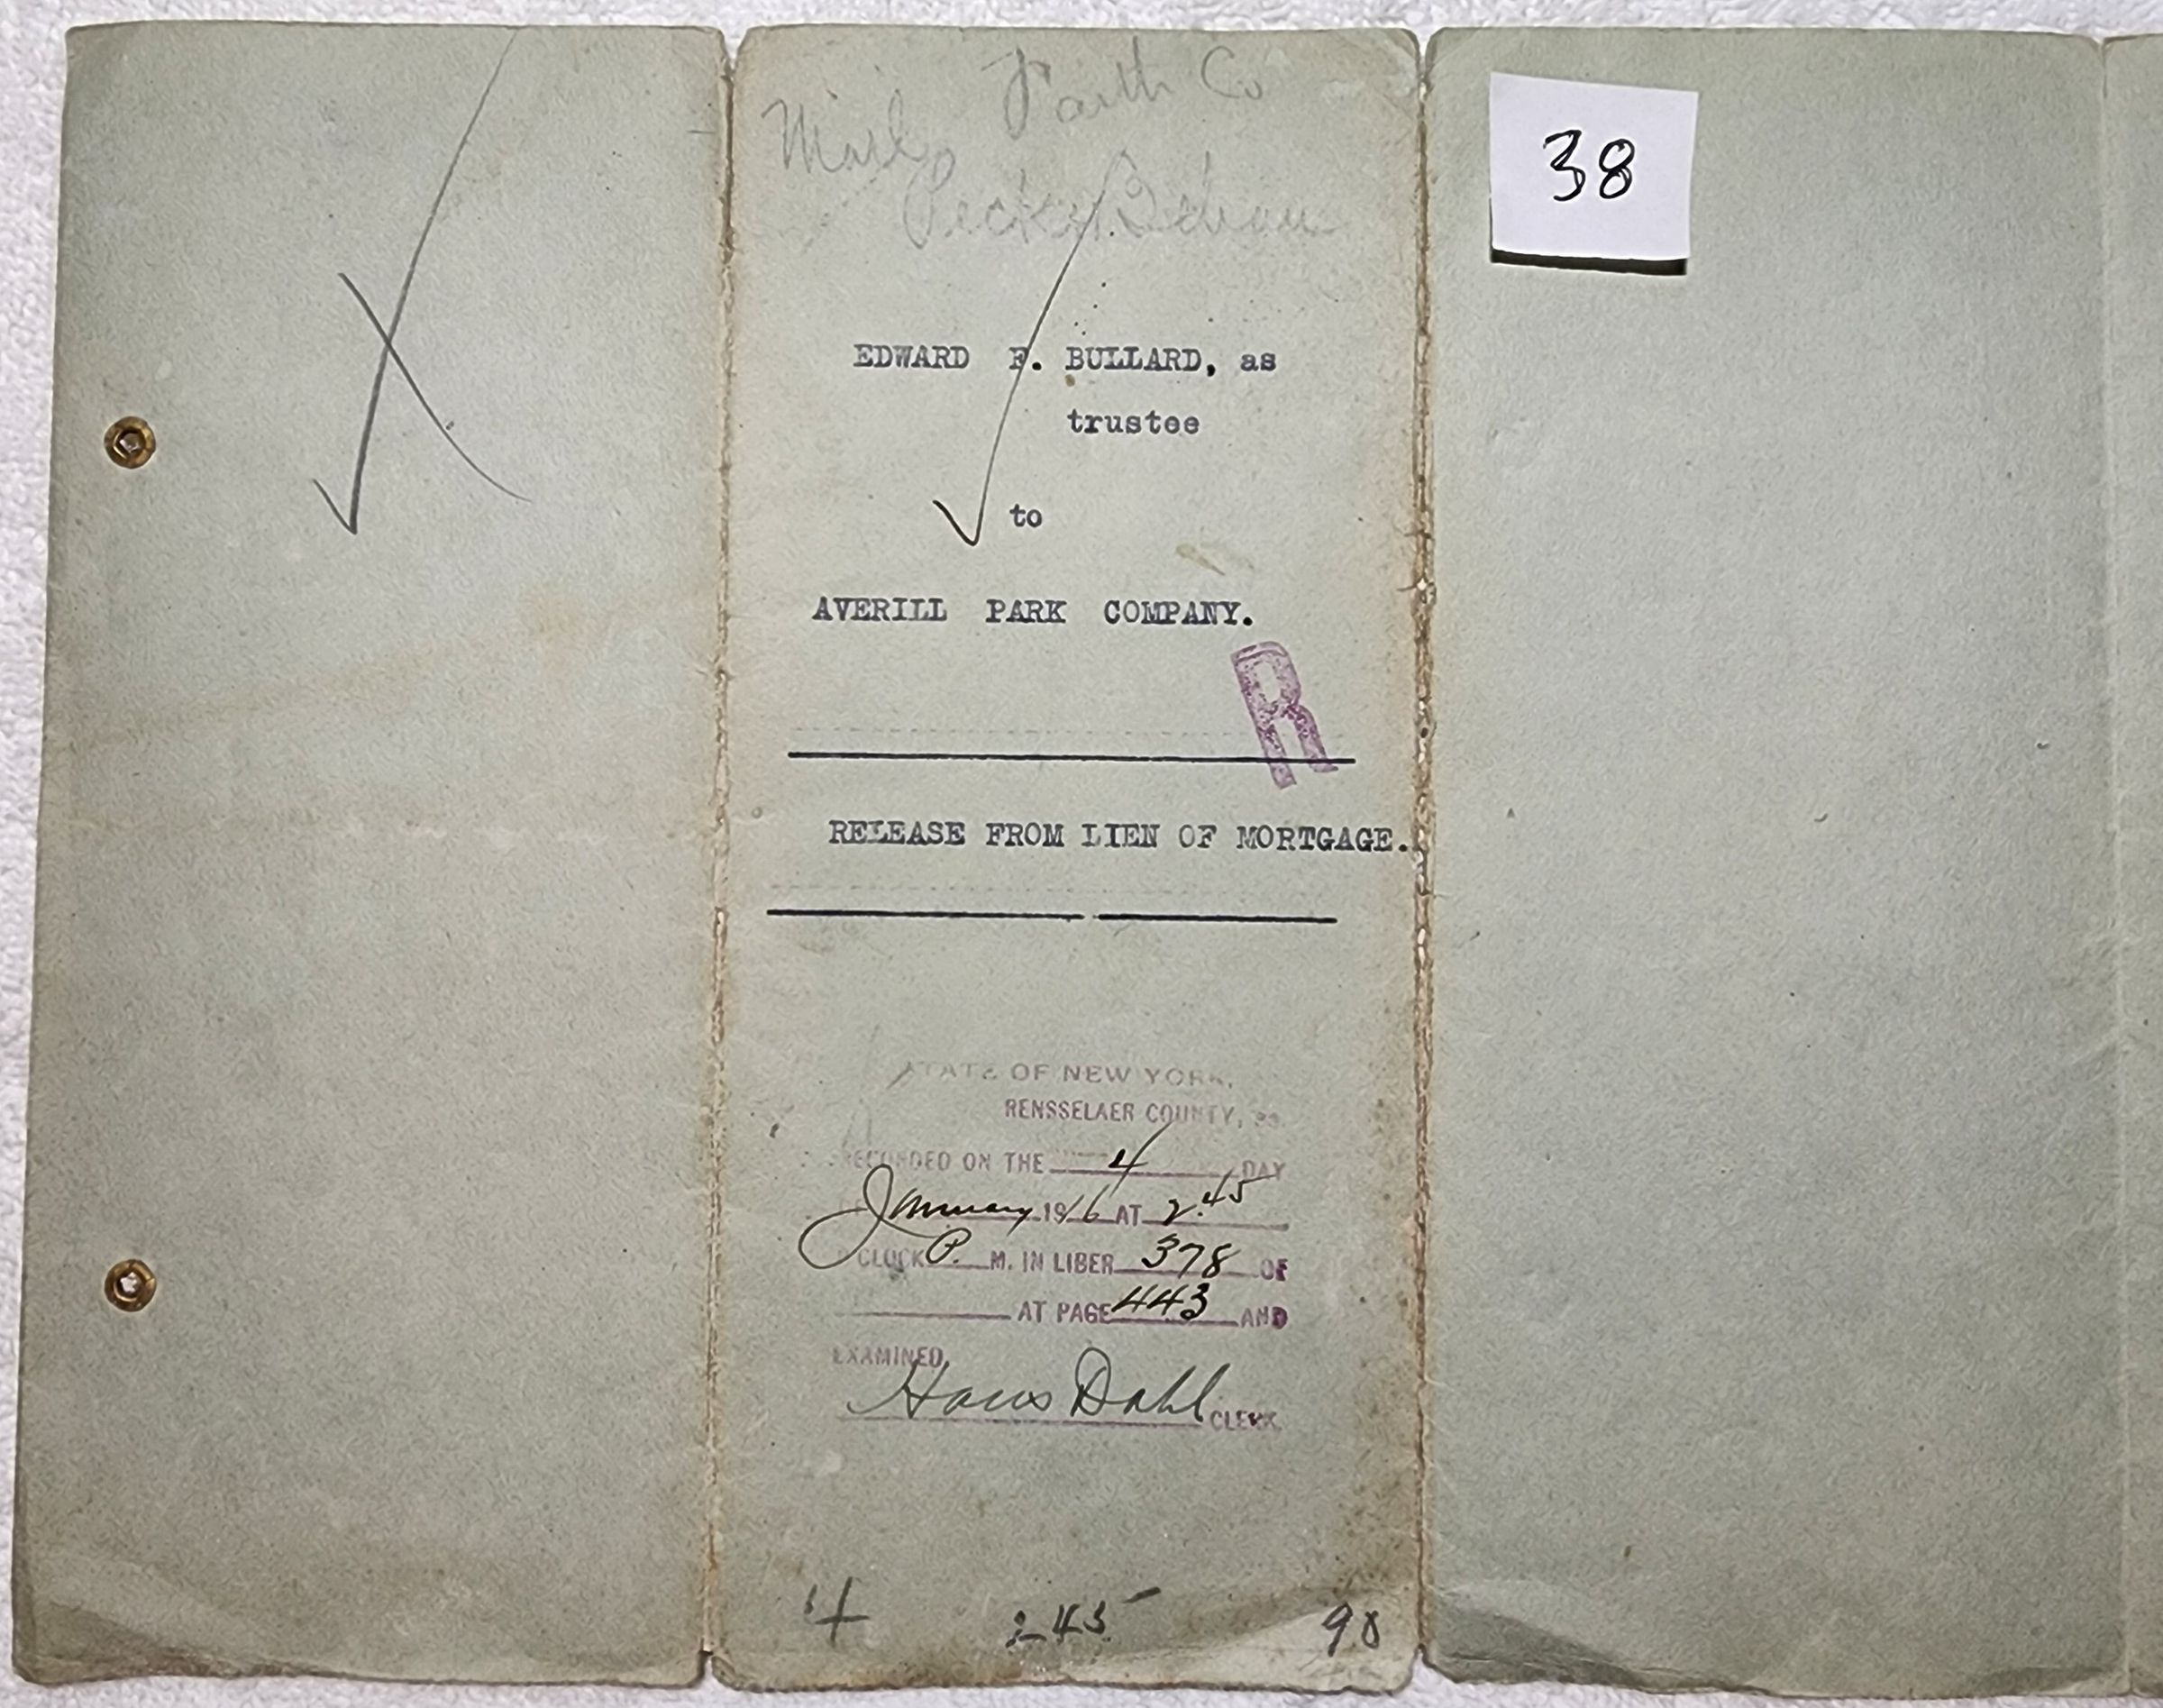 Faith Co
Mail
38
EDWARD F. BULLARD, as
trustee
to
AVERILL PARK COMPANY.
R
RELEASE FROM LIEN OF MORTGAGE.
STATE OF NEW YORK,
RENSSELAER COUNTY, ss.
RECORDED ON THE 4 DAY
January 1916 AT 2.45
O'CLOCK P. M. IN LIBER 378 OF
AT PAGE 443 AND
EXAMINED,
Hans Dahl CLERK.
4 245 90